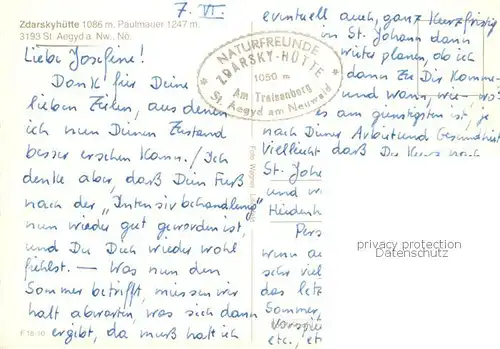 7. VI.
Zdarskyhütte 1086 m, Paulmauer 1247 m.
3193 St. Aegyd a. Nw., Nö.
Liebe Josefine!
Dank für Deine
lieben Zeilen, aus denen
ich nun Deinen Zustand
besser ersehen kann. / Ich
denke aber, daß Dein Fuß
nach der "Intensivbehandlung"
nun wieder gut geworden ist,
und Du Dich wieder wohl
fühlst. — Was nun den
Sommer betrifft, müssen wir
halt abwarten, was sich dann
ergibt, da muß halt ich
NATURFREUNDE
ZDARSKY-HÜTTE
1050 m
Am Traisenberg
St. Aegyd am Neuwald
eventuell auch, ganz kurzfristig
St. Johann dann
weiter planen, ob ich
dann zu Dir komme
und wann, wie - wo?
es am günstigsten ist, je
nach Deiner Arbeit und Gesundheit
Vielleicht daß Du kurz nach
St. Joha
und w
Heidenh
Pers
wenn au
sehr viel
das letz
Sommer,
etc., et
privacy protection
Datenschutz